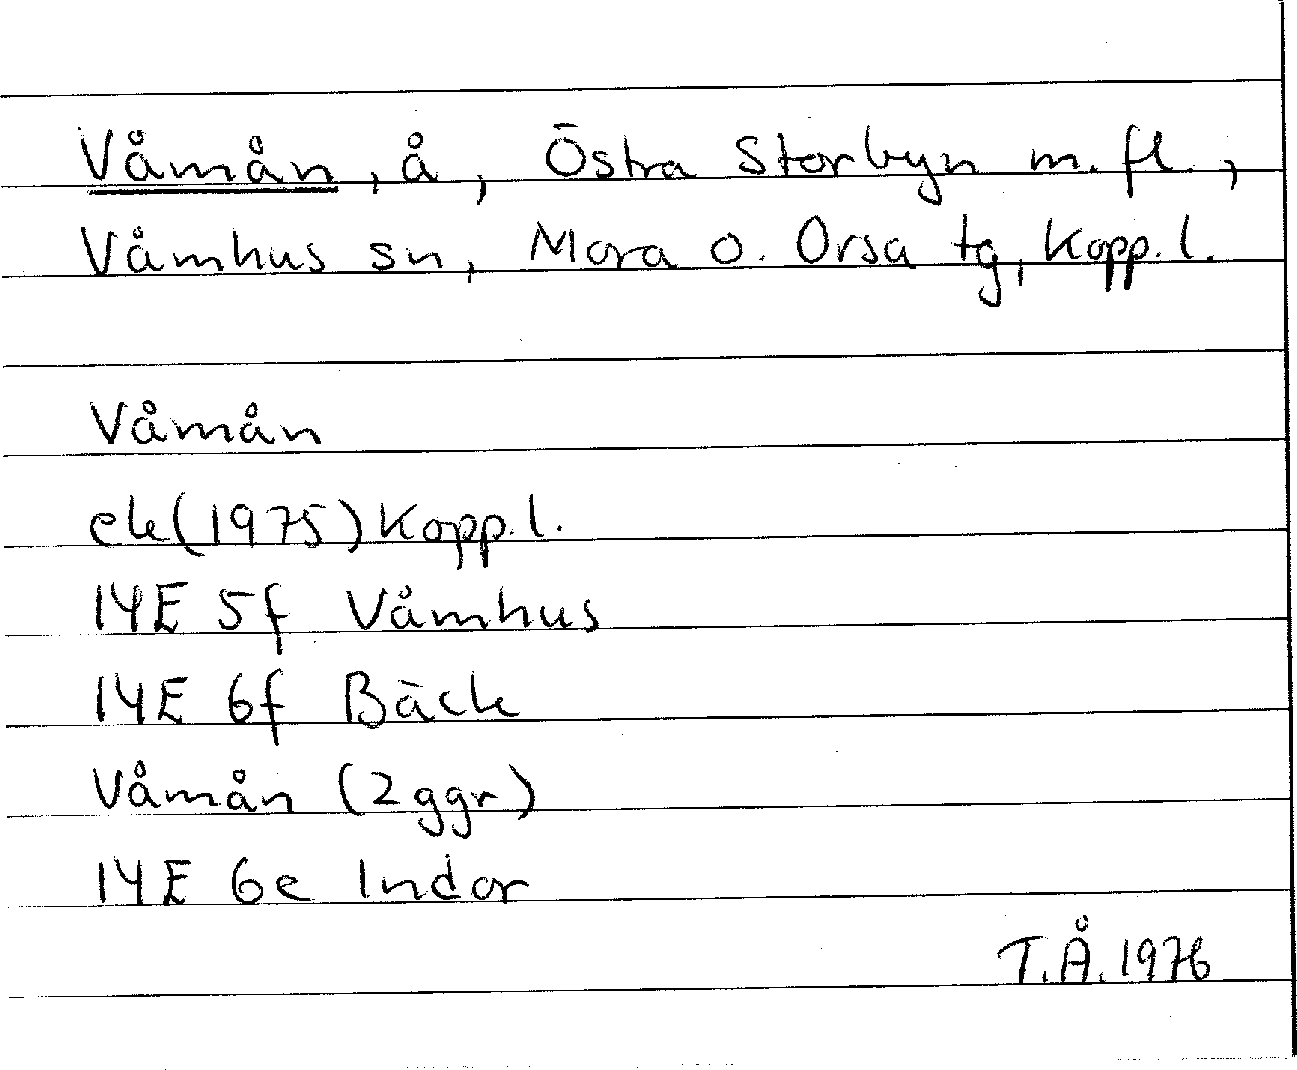 Våmån, å, Östra Storbyn m. fl.,
Våmhus sn, Mora o. Orsa tg, Kopp. l.
Våmån
ek (1975) Kopp. l.
14E 5f Våmhus
14E 6f Bäck
Våmån (2 ggr)
14E 6e Indor
T.Å. 1976